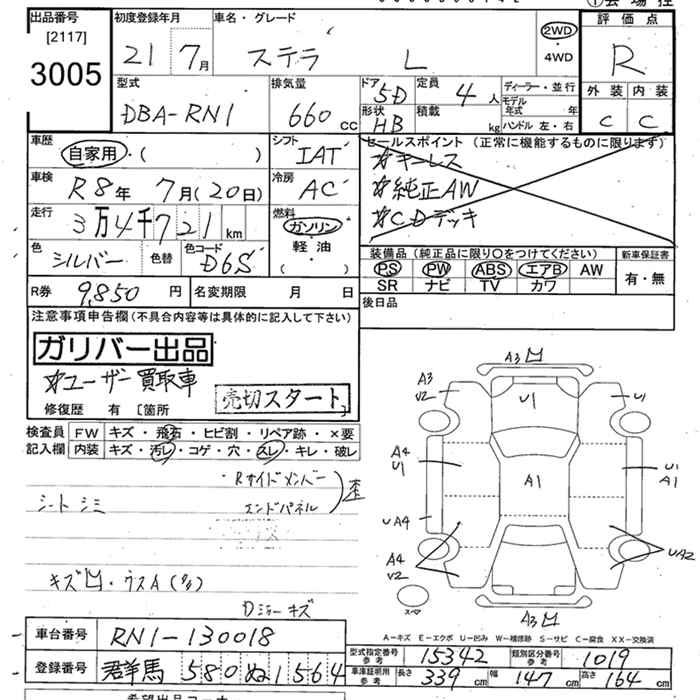 出品番号
[2117]
3005
初度登録年月
21 7月
車名・グレード
ステラ L
2WD
・
4WD
評価点
R
外装 内装
C C
型式
DBA-RN1
排気量
660 cc
ドア
5D
形状
HB
定員
4 人
積載
kg
ディーラー・並行
モデル年式 年
ハンドル 左・右
車歴
自家用・( )
シフト
IAT
セールスポイント (正常に機能するものに限ります)
☆キーレス
☆純正AW
☆CDデッキ
車検
R8年 7月(20日)
冷房
AC
走行
3万4千721 km
燃料
ガソリン
・
軽油
・
( )
色
シルバー
色替
色コード
D6S
装備品 (純正品に限り○をつけてください)
PS PW ABS エアB AW
SR ナビ TV カワ
新車保証書
有・無
R券 9,850 円
名変期限 月 日
後日品
注意事項申告欄 (不具合内容等は具体的に記入して下さい)
ガリバー出品
☆ユーザー買取車
売切スタート
修復歴 有 [箇所 ]
検査員記入欄
FW キズ・飛石・ヒビ割・リペア跡・×要
内装 キズ・汚レ・コゲ・穴・スレ・キレ・破レ
Rサイドメンバー
エンドパネル
歪
シート シミ
キズ凹・ウスA
Dシャーキズ
A3凹
A3
U2
U1
U1
A4
U1
A1
U1
A1
UA4
A4
U2
UA2
スペア
A3凹
A-キズ E-エクボ U-凹み W-補修跡 S-サビ C-腐食 XX-交換済
車台番号 RN1-130018
登録番号 群馬 580 ぬ 1564
型式指定番号
参考
15342
類別区分番号
参考
1019
車庫証明用
参考
長さ 339 cm
幅 147 cm
高さ 164 cm
希望出品コーナー